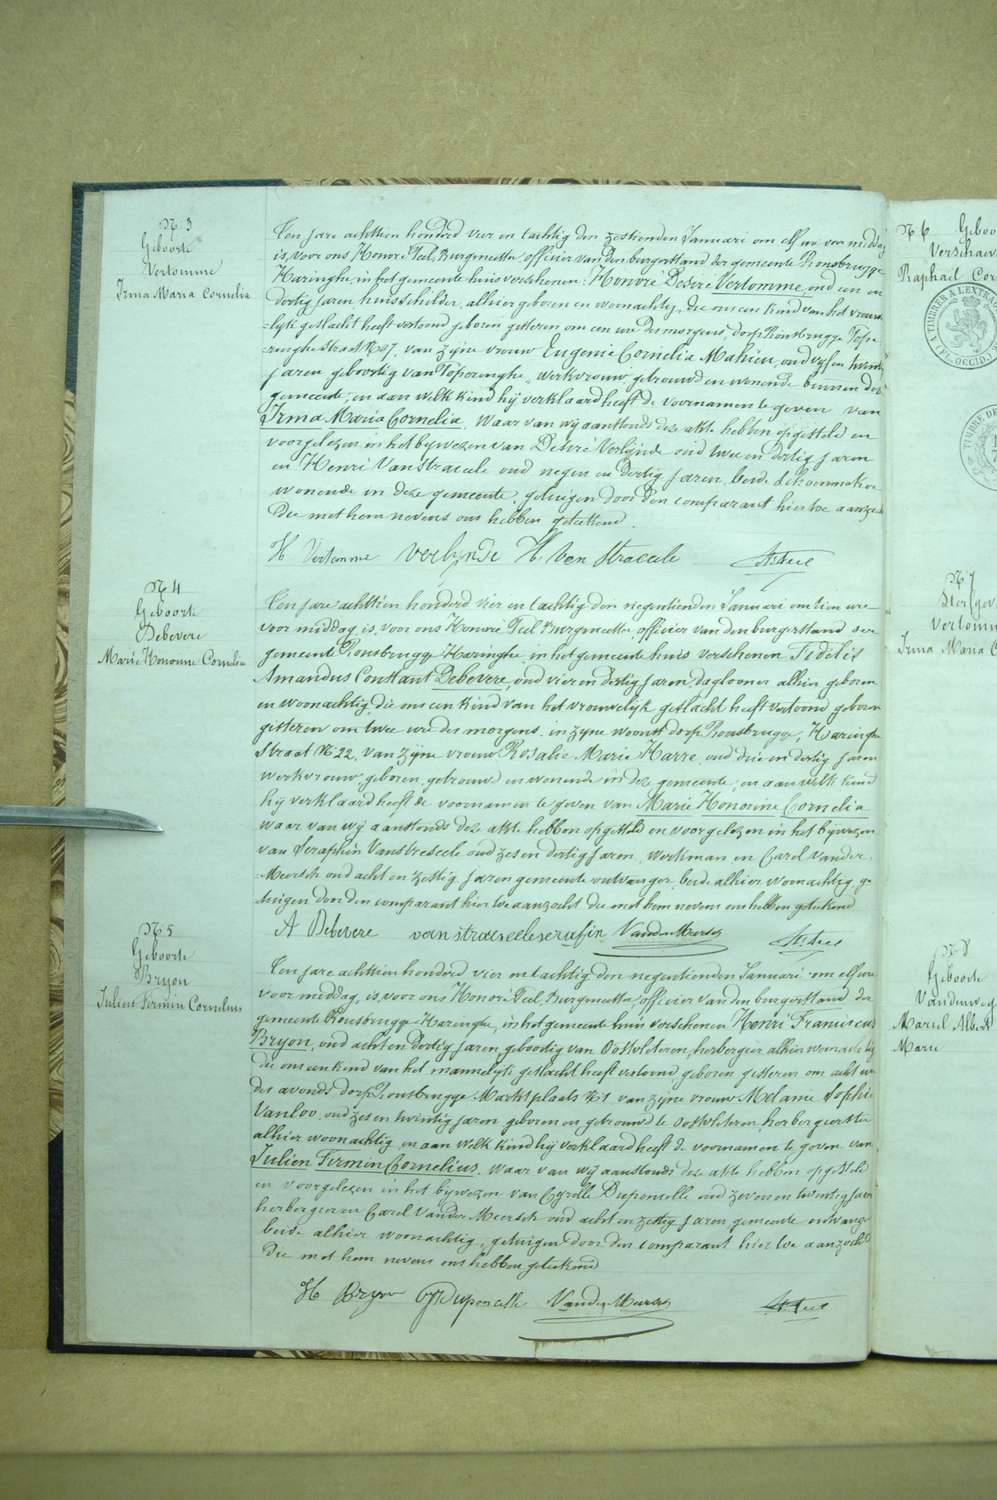 N 3
Geboorte
Vertomme
Irma Maria Cornelia
Ten jare achttien honderd vier en tachtig den zestienden Januari om elf ure voor middag
is, voor ons Honoré Teel, Burgmeester, officier van den burgerstand der gemeente Rousbrugge
Haringhe, in het gemeente huis verschenen: Honoré Desiré Vertomme, oud een en
dertig jaren huisschilder, alhier geboren en woonachtig, die ons een kind van het vrouwe
-lijk geslacht heeft vertoond geboren gisteren om een ure des morgens, dorp Rousbrugge Pope
-ringhe Straat N 7, van zijne vrouw Eugenie Cornelia Mahieu, oud vijf en twintig
jaren geboortig van Poperinghe, werkvrouw getrouwd en wonende binnen deze
gemeente; en aan welk kind hij verklaard heeft de voornamen te geven van
Irma Maria Cornelia. Waar van wij aanstonds deze akte hebben opgesteld en
voorgelezen in het bijwezen van Désiré Verlynde oud twee en dertig jaren
en Henri Van Straceele oud negen en dertig jaren, beide schoenmaker
wonende in deze gemeente, getuigen door den comparant hier toe aanzocht
die met hem nevens ons hebben geteekend.
H Vertomme Verlynde H. Van Straceele H. Teel
N 4
Geboorte
Debevere
Marie Honorine Cornelia
Ten jare achttien honderd vier en tachtig den negentienden Januari om tien ure
voor middag, is, voor ons Honoré Teel, Burgmeester, officier van den burgerstand der
gemeente Rousbrugge Haringhe, in het gemeente huis verschenen Fidelis
Amandus Constant Debevere, oud vier en dertig jaren, daglooner alhier geboren
en woonachtig, die ons een kind van het vrouwelijk geslacht heeft vertoond geboren
gisteren om twee ure des morgens in zijne woonst dorp Rousbrugge, Haringhe
Straat N 22, van zijne vrouw Rosalie Marie Harre, oud drie en dertig jaren
werkvrouw, geboren, getrouwd en wonende in deze gemeente; en aan welk kind
hij verklaard heeft de voornamen te geven van Marie Honorine Cornelia
waar van wij aanstonds deze akte hebben opgesteld en voorgelezen in het bijwezen
van Seraphin Vanstreseele oud zes en dertig jaren, werkman en Carel Vander
-Meersch oud acht en zestig jaren gemeente ontvanger beide alhier woonachtig, ge
-tuigen door den comparant hier toe aanzocht die met hem nevens ons hebben geteekend
A Debevere van straeseele serafin VanderMeersch H. Teel
N 5
Geboorte
Bryon
Julien Firmin Cornelius
Ten jare achttien honderd vier en tachtig den negentienden Januari om elf ure
voor middag, is, voor ons Honoré Teel, Burgmeester, officier van den burgerstand der
gemeente Rousbrugge-Haringhe, in het gemeente huis verschenen Henri Franciscus
Bryon, oud acht en dertig jaren, geboortig van Oostvleteren, herbergier alhier woonachtig
die ons een kind van het mannelijk geslacht heeft vertoond geboren gisteren om acht ure
des avonds, dorp Rousbrugge Markt plaats N 1 van zijne vrouw Melanie Sophie
Vanloo, oud zes en twintig jaren geboren en getrouwd te Oostvleteren herbergierster
alhier woonachtig en aan welk kind hij verklaard heeft de voornamen te geven van
Julien Firmin Cornelius. Waar van wij aanstonds deze akte hebben opgesteld
en voorgelezen in het bijwezen van Cyrille Duponselle oud zeven en twintig jaren
herbergier en Carel Vander Meersch oud acht en zestig jaren gemeente ontvanger
beide alhier woonachtig, getuigen door den comparant hier toe aanzocht
die met hem nevens ons hebben geteekend
H Bryon Cy Duponselle VanderMeersch H. Teel
N 6 Geboo
Verschaev
Raphaël Cor
A TIMBRER A L'EXTRAO
(FL. OCCID.)
TIMBRE DE
N 7
Sterfgev
Vertomm
Irma Maria C
N 8
Geboorte
Vandenweg
Marcel Albert
Marie